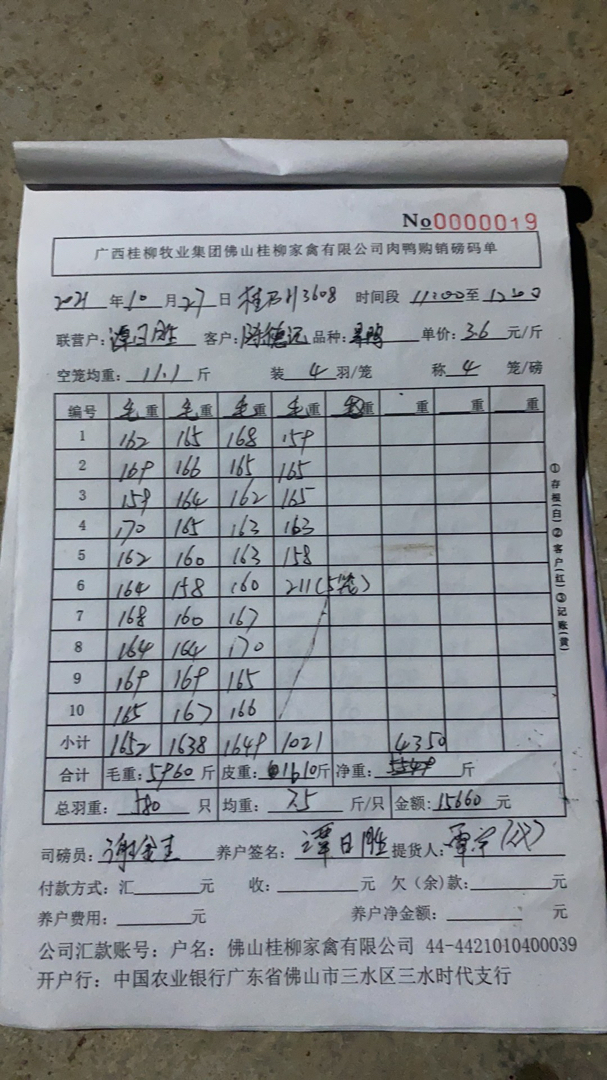 No0000019
广西桂柳牧业集团佛山桂柳家禽有限公司肉鸭购销磅码单
2021年10月27日 桂A 13608 时间段 11:00至12:00
联营户:谭日胜 客户:陈德远 品种: 单价:3.6元/斤
空笼均重:11.1斤 装4羽/笼 称4笼/磅
编号 毛重 毛重 毛重 毛重 重 重 重 重
1 162 165 168 159
2 169 166 165 165
3 159 164 162 165
4 170 165 163 163
5 162 160 163 158
6 164 158 160 211(5笼)
7 168 160 167
8 164 164 170
9 169 169 165
10 165 167 166
小计 1652 1638 1649 1021 4350
合计 毛重:5960斤 皮重:1610斤 净重:斤
总羽重:580只 均重:7.5斤/只 金额:15660元
司磅员:谢金圭 养户签名:谭日胜 提货人:
付款方式:汇元 收:元 欠(余)款:元
养户费用:元 养户净金额:元
公司汇款账号:户名:佛山桂柳家禽有限公司 44-4421010400039
开户行:中国农业银行广东省佛山市三水区三水时代支行
①存根(白)②客户(红)③记账(黄)